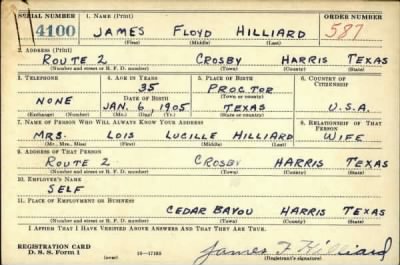 SERIAL NUMBER 1. NAME (Print) ORDER NUMBER
4100 JAMES FLOYD HILLIARD 587
(First) (Middle) (Last)
2. ADDRESS (Print)
ROUTE 2 CROSBY HARRIS TEXAS
(Number and street or R. F. D. number) (Town) (County) (State)
3. TELEPHONE 4. AGE IN YEARS 5. PLACE OF BIRTH 6. COUNTRY OF CITIZENSHIP
35 PROCTOR
DATE OF BIRTH (Town or county)
NONE JAN. 6, 1905 TEXAS U.S.A.
(Exchange) (No.) (Mo.) (Day) (Yr.) (State or country)
7. NAME OF PERSON WHO WILL ALWAYS KNOW YOUR ADDRESS 8. RELATIONSHIP OF THAT PERSON
MRS. LOIS LUCILLE HILLIARD WIFE
(Mr., Mrs., Miss) (First) (Middle) (Last)
9. ADDRESS OF THAT PERSON
ROUTE 2 CROSBY HARRIS TEXAS
(Number and street or R. F. D. number) (Town) (County) (State)
10. EMPLOYER'S NAME
SELF
11. PLACE OF EMPLOYMENT OR BUSINESS
CEDAR BAYOU HARRIS TEXAS
(Number and street or R. F. D. number) (Town) (County) (State)
I AFFIRM THAT I HAVE VERIFIED ABOVE ANSWERS AND THAT THEY ARE TRUE.
REGISTRATION CARD
D. S. S. Form 1 (over) 16—17105 James F. Hilliard
(Registrant's signature)